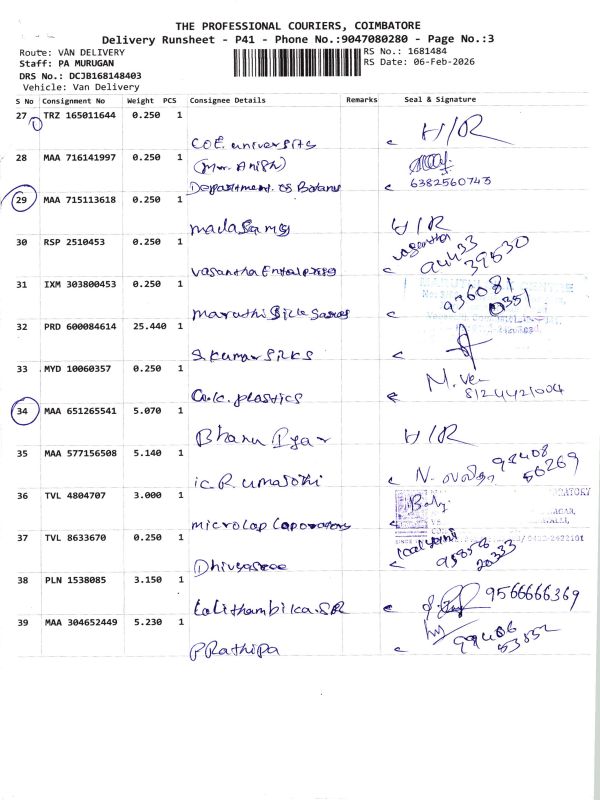 THE PROFESSIONAL COURIERS, COIMBATORE
Delivery Runsheet - P41 - Phone No.:9047080280 - Page No.:3
Route: VAN DELIVERY
Staff: PA MURUGAN
DRS No.: DCJB168148403
Vehicle: Van Delivery
RS No.: 1681484
RS Date: 06-Feb-2026
S No Consignment No Weight PCS Consignee Details Remarks Seal & Signature
27 TRZ 165011644 0.250 1
COE.university H/R
28 MAA 716141997 0.250 1
(Mr. Anish)
Department of Botany 6382560743
29 MAA 715113618 0.250 1
madasamy H/R
30 RSP 2510453 0.250 1
vasantha 94433 39530
31 IXM 303800453 0.250 1
Maruthi Silk Sarees 936081 0351
32 PRD 600084614 25.440 1
S.Kumar Silks
33 MYD 10060357 0.250 1
plastics M.Ven 8124421004
34 MAA 651265541 5.070 1
Bhanu Iyar H/R
35 MAA 577156508 5.140 1
R.umajothi N. 98408 56269
36 TVL 4804707 3.000 1
microlap Laporatory
37 TVL 8633670 0.250 1
Dhivyasree 95858 20333
38 PLN 1538085 3.150 1
Lalithambika.SR 9566666369
39 MAA 304652449 5.230 1
PRathipa 99406 53852